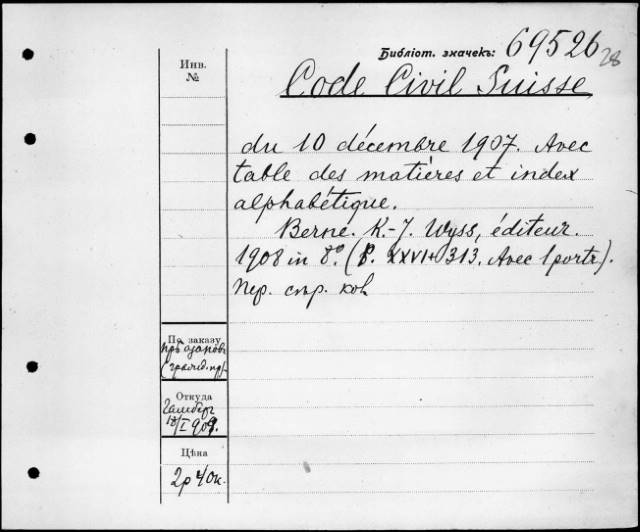 Библіот. значекъ: 69526
28
Инв.
№
Code Civil Suisse
du 10 décembre 1907. Avec
table des matières et index
alphabétique.
Berne. K.-J. Wyss, éditeur.
1908 in 8°. (P. XXVI+313. Avec 1 portr).
Пер. кол
По заказу
Откуда
18/I 909.
Цѣна
2р 40к.